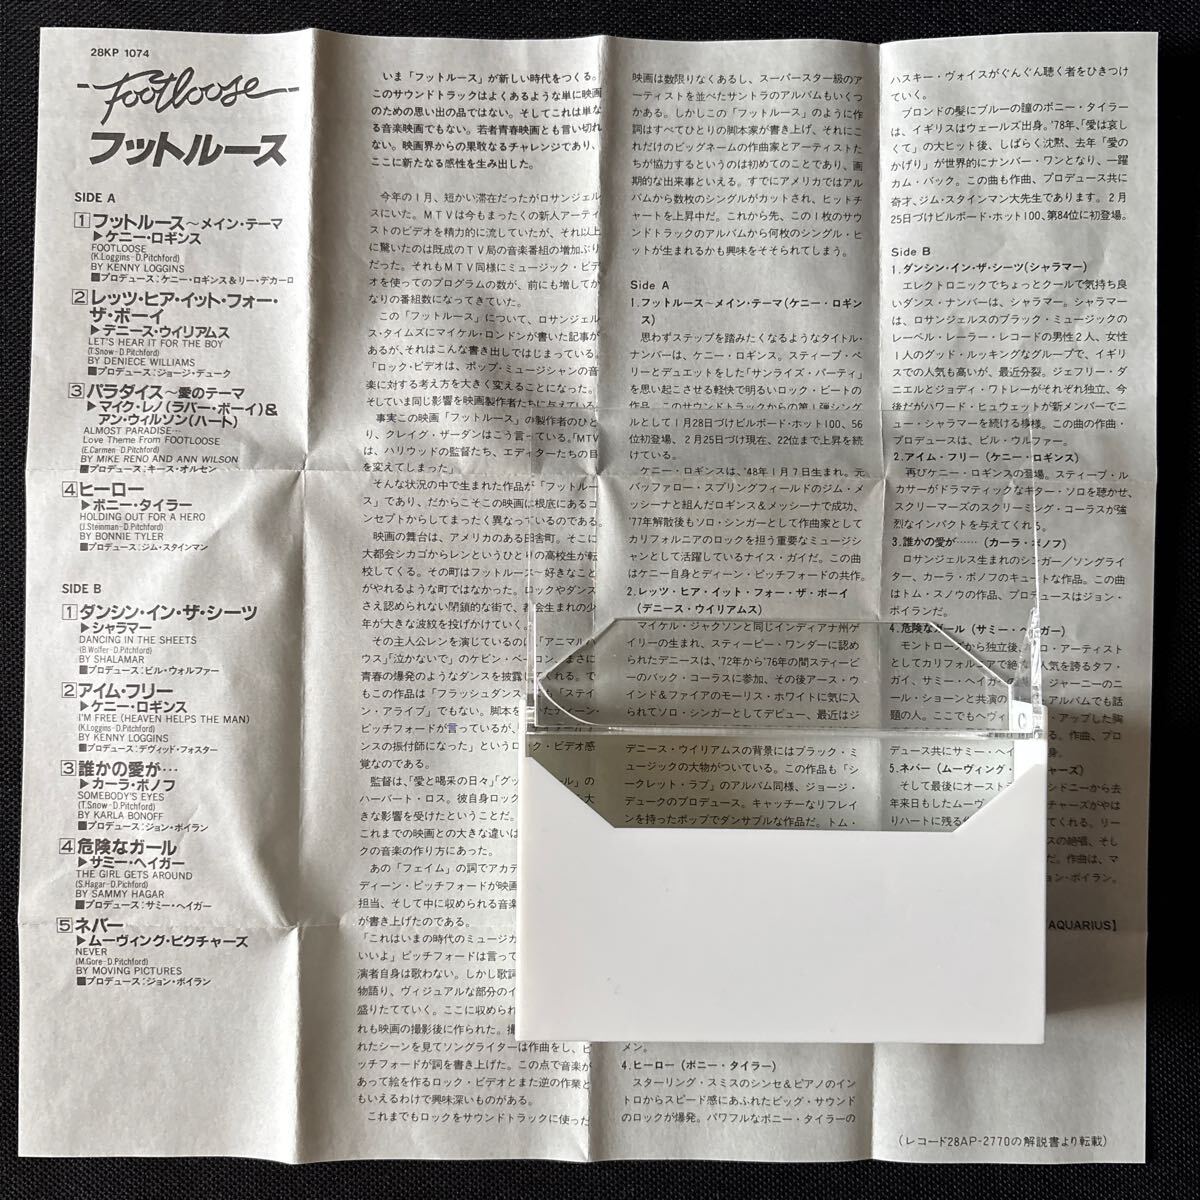 28KP 1074
Footloose
フットルース
SIDE A
1 フットルース～メイン・テーマ
▶ケニー・ロギンス
FOOTLOOSE
(K.Loggins-D.Pitchford)
BY KENNY LOGGINS
■プロデュース:ケニー・ロギンス&リー・デカーロ
2 レッツ・ヒア・イット・フォー・
ザ・ボーイ
▶デニース・ウイリアムス
LET'S HEAR IT FOR THE BOY
(T.Snow-D.Pitchford)
BY DENIECE WILLIAMS
■プロデュース:ジョージ・デューク
3 パラダイス～愛のテーマ
▶マイク・レノ(ラバー・ボーイ)&
アン・ウィルソン(ハート)
ALMOST PARADISE…
Love Theme From FOOTLOOSE
(E.Carmen-D.Pitchford)
BY MIKE RENO AND ANN WILSON
■プロデュース:キース・オルセン
4 ヒーロー
▶ボニー・タイラー
HOLDING OUT FOR A HERO
(J.Steinman-D.Pitchford)
BY BONNIE TYLER
■プロデュース:ジム・スタインマン
SIDE B
1 ダンシン・イン・ザ・シーツ
▶シャラマー
DANCING IN THE SHEETS
(B.Wolfer-D.Pitchford)
BY SHALAMAR
■プロデュース:ビル・ウォルファー
2 アイム・フリー
▶ケニー・ロギンス
I'M FREE (HEAVEN HELPS THE MAN)
(K.Loggins-D.Pitchford)
BY KENNY LOGGINS
■プロデュース:デヴィッド・フォスター
3 誰かの愛が…
▶カーラ・ボノフ
SOMEBODY'S EYES
(T.Snow-D.Pitchford)
BY KARLA BONOFF
■プロデュース:ジョン・ボイラン
4 危険なガール
▶サミー・ヘイガー
THE GIRL GETS AROUND
(S.Hagar-D.Pichford)
BY SAMMY HAGAR
■プロデュース:サミー・ヘイガー
5 ネバー
▶ムーヴィング・ピクチャーズ
NEVER
(M.Gore-D.Pitchford)
BY MOVING PICTURES
■プロデュース:ジョン・ボイラン
いま「フットルース」が新しい時代をつくる。
このサウンドトラックはよくあるような単に映画
のための思い出の品ではない。そしてこれは単な
る音楽映画でもない。若者青春映画とも言い切れ
ない。映画界からの果敢なるチャレンジであり、
ここに新たなる感性を生み出した。
今年の1月、短かい滞在だったがロサンジェル
スにいた。MTVは今もまったくの新人アーティ
ストのビデオを精力的に流していたが、それ以上
に驚いたのは既成のTV局の音楽番組の増加ぶり
だった。それもMTV同様にミュージック・ビデ
オを使ってのプログラムの数が、前にも増してか
なりの番組数になってきていた。
この「フットルース」について、ロサンジェル
ス・タイムズにマイケル・ロンドンが書いた記事が
あるが、それはこんな書き出しではじまっている。
「ロック・ビデオは、ポップ・ミュージシャンの音
楽に対する考え方を大きく変えることになった。
そしていま同じ影響を映画製作者たちに与えている」
事実この映画「フットルース」の製作者のひと
り、クレイグ・ザーダンはこう言っている。「MTV
は、ハリウッドの監督たち、エディターたちの目
を変えてしまった」
そんな状況の中で生まれた作品が「フットルー
ス」であり、だからこそこの映画に根底にあるコ
ンセプトからしてまったく異なっているのである。
映画の舞台は、アメリカのある田舎町。そこに
大都会シカゴからレンというひとりの高校生が転
校してくる。その町はフットルース─好きなこと
がやれるような町ではなかった。ロックやダンス
さえ認められない閉鎖的な街で、都会生まれの少
年が大きな波紋を投げかけていく。
その主人公レンを演じているのは「アニマル・ハ
ウス」「泣かないで」のケビン・ベーコン、まさに
青春の爆発のようなダンスを披露してくれる。で
もこの作品は「フラッシュダンス」でも「ステイ
ン・アライブ」でもない。脚本を
ピッチフォードが言っているが、
ンスの振付師になった」というロック・ビデオ感
覚なのである。
監督は、「愛と喝采の日々」「グッ
ハーバート・ロス。彼自身ロック
きな影響を受けたということだ。
これまでの映画との大きな違いは
クの音楽の作り方にあった。
あの「フェイム」の詞でアカデ
ディーン・ピッチフォードが映画
担当、そして中に収められる音楽
が書き上げたのである。
「これはいまの時代のミュージカ
いいよ」ピッチフォードは言って
演者自身は歌わない。しかし歌詞
物語り、ヴィジュアルな部分のイ
盛りたてていく。ここに収められ
れも映画の撮影後に作られた。撮
れたシーンを見てソングライターは作曲をし、ピ
ッチフォードが詞を書き上げた。この点で音楽が
あって絵を作るロック・ビデオとまた逆の作業と
もいえるわけで興味深いものがある。
これまでもロックをサウンドトラックに使った
映画は数限りなくあるし、スーパースター級のア
ーティストを並べたサントラのアルバムもいくつ
かある。しかしこの「フットルース」のように作
詞はすべてひとりの脚本家が書き上げ、それにこ
れだけのビッグネームの作曲家とアーティストた
ちが協力するというのは初めてのことであり、画
期的な出来事といえる。すでにアメリカではアル
バムから数枚のシングルがカットされ、ヒットチ
ャートを上昇中だ。これから先、この1枚のサウ
ンドトラックのアルバムから何枚のシングル・ヒ
ットが生まれるかも興味をそそられてしまう。
Side A
1.フットルース～メイン・テーマ(ケニー・ロギン
ス)
思わずステップを踏みたくなるようなタイトル・
ナンバーは、ケニー・ロギンス。スティーブ・ペ
リーとデュエットをした「サンライズ・パーティ」
を思い起こさせる軽快で明るいロック・ビートの
作品。このサウンドトラックからの第1弾シング
ルとして1月28日づけビルボード・ホット100、56
位初登場、2月25日づけ現在、22位まで上昇を続
けている。
ケニー・ロギンスは、'48年1月7日生まれ。元
バッファロー・スプリングフィールドのジム・メ
ッシーナと組んだロギンス&メッシーナで成功、
'77年解散後もソロ・シンガーとして作曲家として
カリフォルニアのロックを担う重要なミュージシ
ャンとして活躍しているナイス・ガイだ。この曲
はケニー自身とディーン・ピッチフォードの共作。
2.レッツ・ヒア・イット・フォー・ザ・ボーイ
(デニース・ウイリアムス)
マイケル・ジャクソンと同じインディアナ州ゲ
イリーの生まれ、スティービー・ワンダーに認め
られたデニースは、'72年から'76年の間スティービ
ーのバック・コーラスに参加、その後アース・ウ
インド&ファイアのモーリス・ホワイトに気に入
られてソロ・シンガーとしてデビュー、最近はジ
デニース・ウイリアムスの背景にはブラック・ミ
ュージックの大物がついている。この作品も「シ
ークレット・ラブ」のアルバム同様、ジョージ・
デュークのプロデュース。キャッチーなリフレイ
ンを持ったポップでダンサブルな作品だ。トム・
メン。
4.ヒーロー(ボニー・タイラー)
スターリング・スミスのシンセ&ピアノのイン
トロからスピード感にあふれたビッグ・サウンド
のロックが爆発。パワフルなボニー・タイラーの
ハスキー・ヴォイスがぐんぐん聴く者をひきつけ
ていく。
ブロンドの髪にブルーの瞳のボニー・タイラー
は、イギリスはウェールズ出身。'78年、「愛は哀し
くて」の大ヒット後、しばらく沈黙、去年「愛の
かげり」が世界的にナンバー・ワンとなり、一躍
カム・バック。この曲も作曲、プロデュース共に
奇才、ジム・スタインマン大先生であります。2月
25日づけビルボード・ホット100、第84位に初登場。
Side B
1.ダンシン・イン・ザ・シーツ(シャラマー)
エレクトロニックでちょっとクールで気持ち良
いダンス・ナンバーは、シャラマー。シャラマー
は、ロサンジェルスのブラック・ミュージックの
レーベル・レーラー・レコードの男性2人、女性
1人のグッド・ルッキングなグループで、イギリ
スでの人気も高いが、最近分裂。ジェフリー・ダ
ニエルとジョディ・ワトレーがそれぞれ独立、今
後だがハワード・ヒュウェットが新メンバーでニ
ュー・シャラマーを続ける模様。この曲の作曲・
プロデュースは、ビル・ウルファー。
2.アイム・フリー(ケニー・ロギンス)
再びケニー・ロギンスの登場。スティーブ・ル
カサーがドラマティックなギター・ソロを聴かせ、
スクリーマーズのスクリーミング・コーラスが強
烈なインパクトを与えてくれる。
3.誰かの愛が……(カーラ・ボノフ)
ロサンジェルス生まれのシンガー/ソングライ
ター、カーラ・ボノフのキュートな作品。この曲
はトム・スノウの作品、プロデュースはジョン・
ボイランだ。
4.危険なガール(サミー・ヘイガー)
モントローズから独立後、ソロ・アーティスト
としてカリフォルニアで絶大な人気を誇るタフ・
ガイ、サミー・ヘイガーの登場。ジャーニーのニ
ール・ショーンと共演のアルバムでも話
題の人。ここでもヘヴィ
・アップした胸
る。作曲、プロ
デュース共にサミー・ヘイ
5.ネバー(ムーヴィング・
チャーズ)
そして最後にオースト
ドニーから去
年来日もしたムーヴ
チャーズがやは
りハートに残る
てくれる。リー
スの絶唱、そし
だ。作曲は、マ
ョン・ボイラン。
AQUARIUS】
(レコード28AP-2770の解説書より転載)